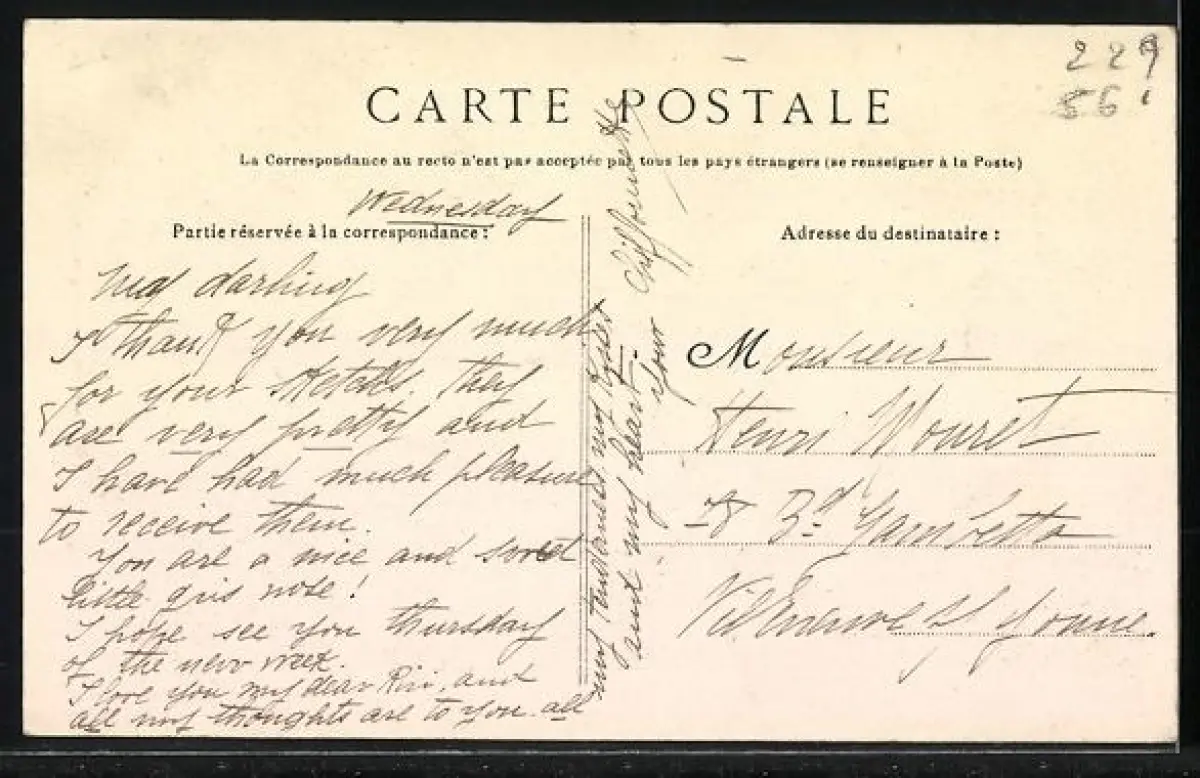 229
56
CARTE POSTALE
La Correspondance au recto n'est pas acceptée par tous les pays étrangers (se renseigner à la Poste)
Wednesday
Partie réservée à la correspondance :
My darling
I thank you very much
for your sketchs. They
are very pretty and
I have had much pleasure
to receive them.
You are a nice and sweet
little gris nose!
I hope see you thursday
of the new week.
I love you my dear Riri, and
all my thoughts are to you. all
my tenderness my kisses
and my heart.
your Chiffonnette
Adresse du destinataire :
Monsieur
Henri Mouret
28 Bd Gambetta
Villeneuve s/ Yonne.